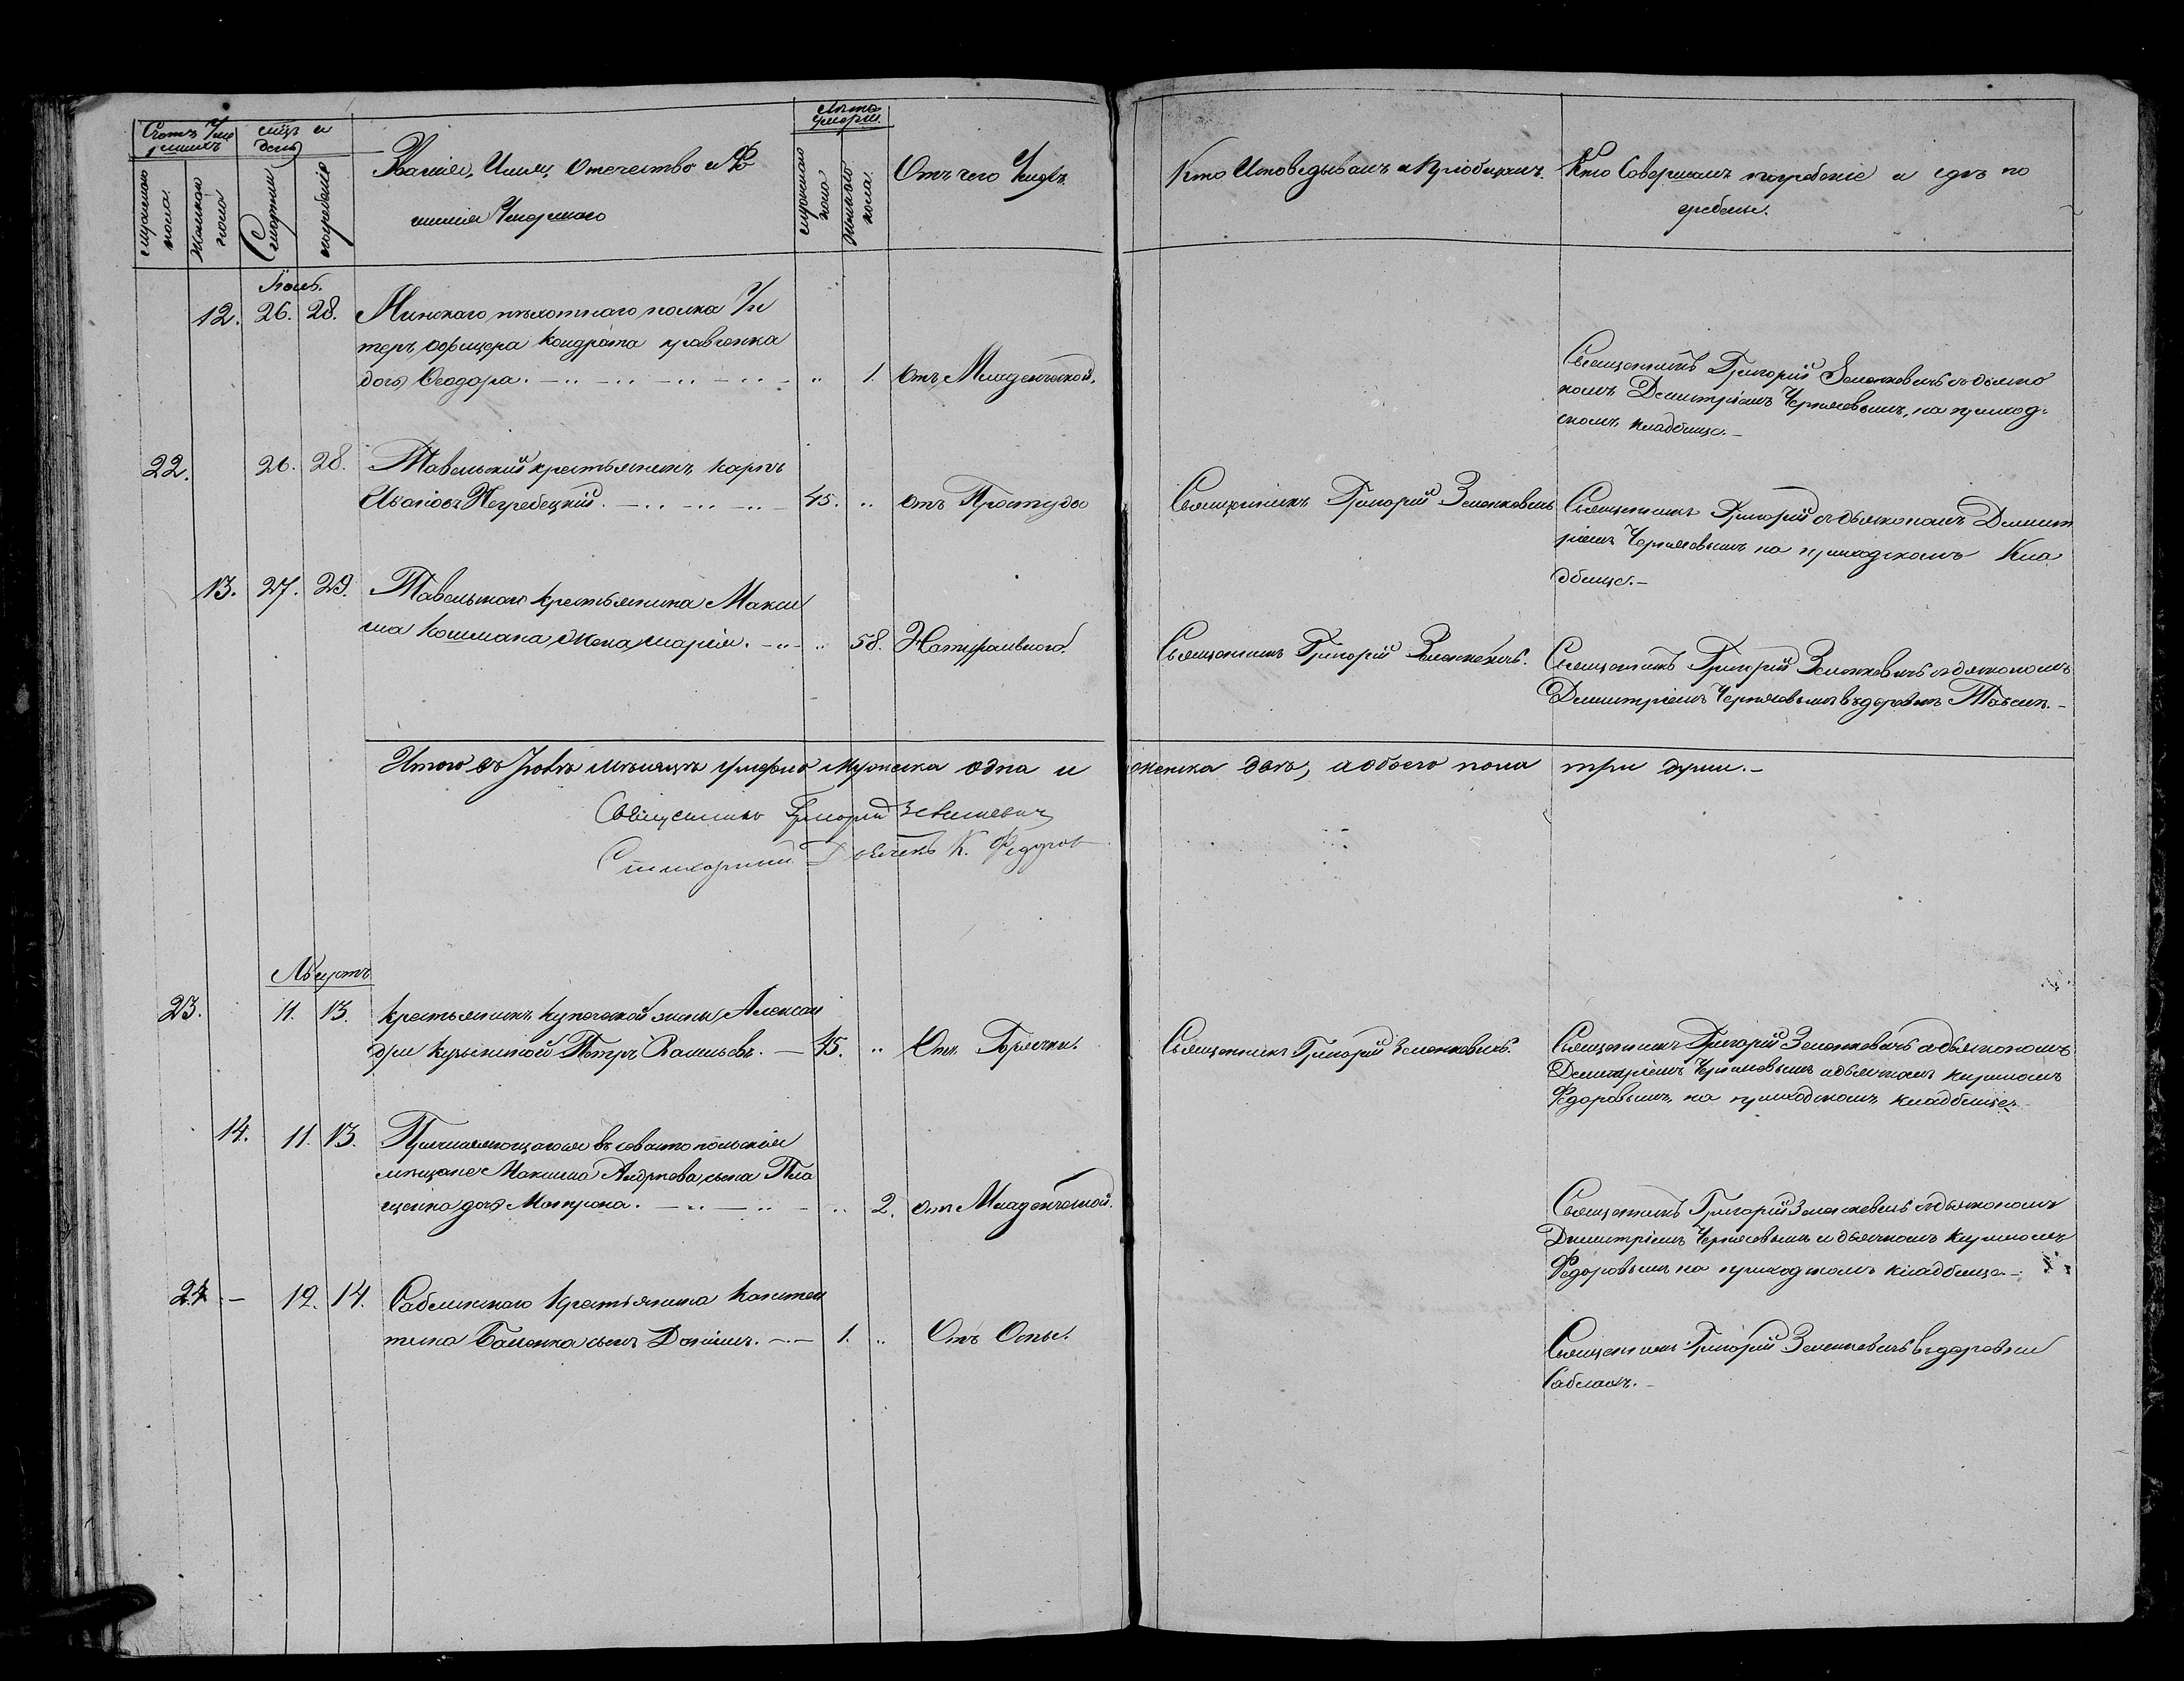 Счетъ Уме
ршихъ
мцъ и
день
Лѣта
Умерш.
мужеска
пола
женска
пола
Смерти
погребенія
Званіе, Имя, Отечество и Фа
милія Умершаго
мужеска
пола
женска
пола
Отъ чего Умеръ
Кто Исповедывалъ и Пріобщалъ
Кто Совершалъ погребеніе и гдѣ по
гребены.
Іюль.
12. 26. 28. Минскаго пѣхотнаго полка Ун
теръ офицера Кондрата Кравченка
дочь Феодора. „ 1. Отъ Младенческой.
Священникъ Григорій Зеленкевичъ съ дьяко
номъ Димитріемъ Чернявскимъ, на приход-
скомъ кладбище.
22. 26. 28. Тавельскій крестьянинъ Карпъ
Ивановъ Негребецкій. 45. „ отъ Простуды
Священникъ Григорій Зеленкевичъ
Священникъ Григорій съ дьякономъ Димит
ріемъ на приходскомъ Кла
дбище.
13. 27. 29. Тавельскаго крестьянина Макси
ма Кошмана жена Марія. „ 58. Натуральною.
Священникъ Григорій Зеленкевичъ.
Священникъ Григорій Зеленкевичъ съ дьякономъ
Димитріемъ въ деревнѣ Тавель.
Итого въ Іюлѣ мѣсяцѣ умерло мужеска одна и женска двѣ, а обоего пола три души.
Священникъ Григорій Зеленкевичъ
Стихарный Дьячекъ К. Федоров
Августъ
23. 11. 13. Крестьянинъ купеческой жены Алексан
дры Петръ Васильевъ. 45. „ Отъ Горячки.
Священникъ Григорій Зеленкевичъ.
Священникъ Григорій Зеленкевичъ съ дьякономъ
Димитріемъ и дьячкомъ Кириломъ
Федоровымъ, на приходскомъ кладбище.
14. 11. 13. Причисляющагося въ севастопольскіе
мещане Максима Андреева сына Пла
щенка дочь Матрона. „ 2. отъ Младенческой.
Священникъ Григорій Зеленкевичъ съ дьякономъ
Димитріемъ и дьячкомъ Кириломъ
Федоровымъ на приходскомъ кладбище.
24. 12. 14. Саблинскаго Крестьянина Констан
тина сынъ Даніилъ. 1. „ Отъ Оспы.
Священникъ Григорій Зеленкевичъ въ деревни
Саблахъ.